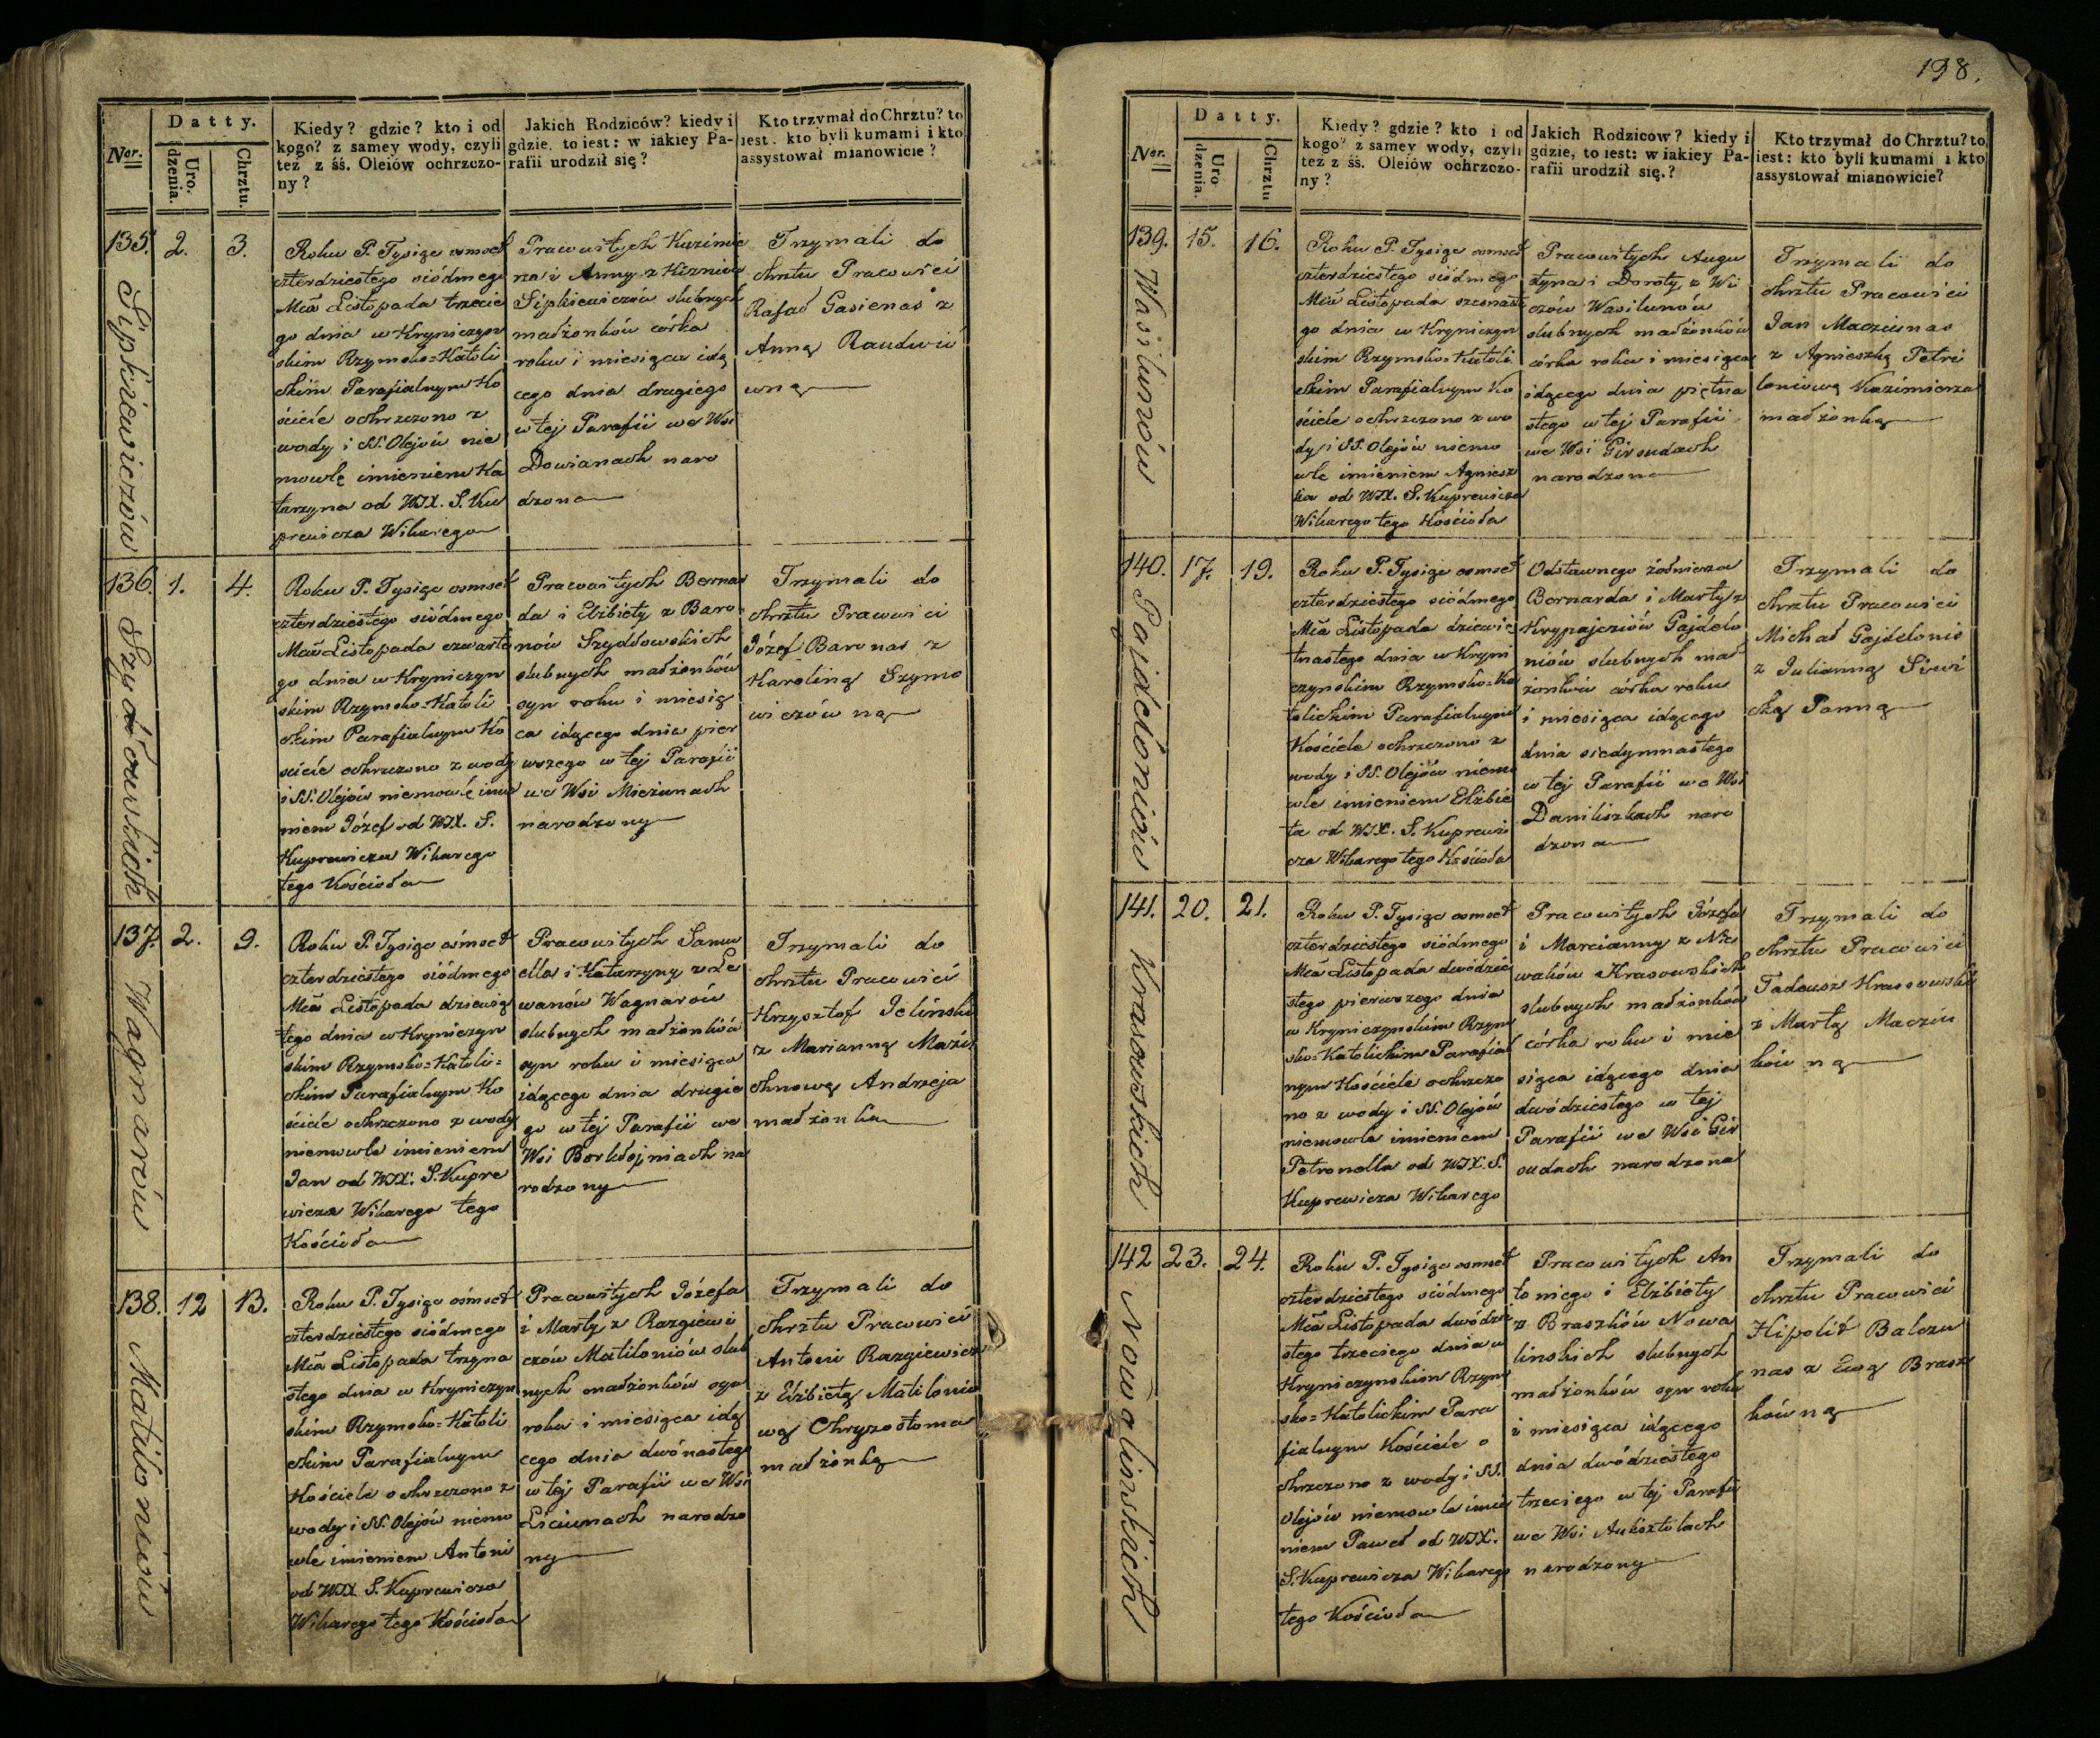 Ner.
Datty.
Uro.
dzenia.
Chrztu.
Kiedy? gdzie? kto i od
kogo? z samey wody, czyli
też z śś. Oleiów ochrzczo-
ny?
Jakich Rodziców? kiedy i
gdzie, to iest: w iakiey Pa-
rafii urodził się?
Kto trzymał do Chrztu? to
iest. kto byli kumami i kto
assystował mianowicie?
135.
Sipkiewiczów
2.
3.
Roku P. Tysiąc osmset
czterdziestego siódmego
Mca Listopada trzecie
go dnia w Kryniczyn
skim Rzymsko=Katoli
ckim Parafialnym Ko
ściele ochrzczono z
wody i SS. Olejów nie
mowlę imieniem Ka
tarzyna od WJX. S. Ku
prewicza Wikarego
Pracowitych Kazimie
rza i Anny z
Sipkiewiczów slubnych
małżonków córka
roku i miesiąca idą
cego dnia drugiego
w tej Parafii we Wsi
Dowianach naro
dzona
Trzymali do
chrztu Pracowici
Rafał Gasienas z
Anną Raudwić
wną
136.
Szydłowskich
1.
4.
Roku P. Tysiąc osmset
czterdziestego siódmego
Mca Listopada czwarte
go dnia w Kryniczyn
skim Rzymsko=Katoli
ckim Parafialnym Ko
ściele ochrzczono z wody
i SS. Olejów niemowlę imie
niem Józef od WJX. S.
Kuprewicza Wikarego
tego Kościoła
Pracowitych Berna
da i Elżbiety z Baro
nów Szydłowskich
slubnych małżonków
syn roku i miesią
ca idącego dnia pier
wszego w tej Parafii
we Wsi Mieżanach
narodzony
Trzymali do
chrztu Pracowici
Józef Baronas z
Karoliną Szymo
wiczów ną
137.
Wagnarów
2.
9.
Roku P. Tysiąc ośmset
czterdziestego siódmego
Mca Listopada dziewią
tego dnia w Kryniczyn
skim Rzymsko=Katoli=
ckim Parafialnym Ko
ściele ochrzczono z wody
niemowle imieniem
Jan od WJX. S. Kupre
wicza Wikarego tego
Kościoła
Pracowitych Samu
ella i Katarzyny z Le
wanów Wagnarów
slubnych małżonków
syn roku i miesiąca
idącego dnia drugie
go w tej Parafii we
Wsi Borkłojniach na
rodzony
Trzymali do
chrztu Pracowici
Krzysztof Jeliński
z Marianną Mazi
chnową Andrzeja
małżonka
138.
Matiloniów
12
13.
Roku P. Tysiąc ośmset
czterdziestego siódmego
Mca Listopada trzyna
stego dnia w Kryniczyn
skim Rzymsko=Katoli
ckim Parafialnym
Kościele ochrzczono z
wody i SS. Olejów niemo
wle imieniem Antoni
od WJX S. Kuprewicza
Wikarego tego Kościoła
Pracowitych Józefa
i Marty z Razgiewi
czów Matiloniów slub
nych małżonków syn
roku i miesiąca idą
cego dnia dwónastego
w tej Parafii we Wsi
Liciunach narodzo
ny
Trzymali do
chrztu Pracowici
Antoni Razgiewicz
z Elżbietą Matilonio
wą Chryzostoma
małżonką
198.
Ner.
Datty.
Uro
dzenia.
Chrztu
Kiedy? gdzie? kto i od
kogo? z samey wody, czyli
też z śś. Oleiów ochrzczo-
ny?
Jakich Rodziców? kiedy i
gdzie, to iest: w iakiey Pa-
rafii urodził się.?
Kto trzymał do Chrztu? to
iest: kto byli kumami i kto
assystował mianowicie?
139.
Wasilunów
15.
16.
Roku P. Tysiąc osmset
czterdziestego siódmego
Mca Listopada szesnaste
go dnia w Kryniczyn
skim Rzymsko=Katoli
ckim Parafialnym Ko
ściele ochrzczono z wo
dy i SS. Olejów niemo
wle imieniem Agniesz
ka od WJX. S. Kuprewicza
Wikarego tego Kościoła
Pracowitych Augu
styna i Doroty z Wi
czów Wasilunów
slubnych małżonków
córka roku i miesiąca
idącego dnia piętna
stego w tej Parafii
we Wsi Girsudach
narodzona
Trzymali do
chrztu Pracowici
Jan Macziunas
z Agnieszką Petri
loniową Kazimierza
małżonką
140.
Gajdeloniów
17.
19.
Roku P. Tysiąc osmset
czterdziestego siódmego
Mca Listopada dziewię
tnastego dnia w Kryni
czynskim Rzymsko=Ka
tolickim Parafialnym
Kościele ochrzczono z
wody i SS. Olejów niemo
wle imieniem Elżbie
ta od WJX. S. Kuprewi
cza Wikarego tego Kościoła
Odstawnego żołnierza
Bernarda i Marty z
Krypajcziów Gajdelo
niów slubnych mał
żonków córka roku
i miesiąca idącego
dnia siedymnastego
w tej Parafii we Wsi
Daniliszkach naro
dzona
Trzymali do
chrztu Pracowici
Michał Gajdelonis
z Julianną Siwi
cką Panną
141.
Krasowskich
20.
21.
Roku P. Tysiąc osmset
czterdziestego siódmego
Mca Listopada dwódzie
stego pierwszego dnia
w Kryniczynskim Rzym
sko=Katolickim Parafial
nym Kościele ochrzczo
no z wody i SS. Olejów
niemowle imieniem
Petronella od WJX. S.
Kuprewicza Wikarego
Pracowitych Józefa
i Marcianny z Nie
wałów Krasowskich
slubnych małżonków
córka roku i mie
siąca idącego dnia
dwódziestego w tej
Parafii we Wsi Gir
sudach narodzona
Trzymali do
chrztu Pracowici
Tadeusz Krasowski
z Martą Macziu
ków ną
142
Nowalinskich
23.
24.
Roku P. Tysiąc osmset
czterdziestego siódmego
Mca Listopada dwódzie
stego trzeciego dnia w
Kryniczynskim Rzym
sko=Katolickim Para
fialnym Kościele o
chrzczono z wody i SS.
Olejów niemowle imie
niem Paweł od WJX.
S. Kuprewicza Wikarego
tego Kościoła
Pracowitych An
toniego i Elżbiety
z Braszków Nowa
linskich slubnych
małżonków syn roku
i miesiąca idącego
dnia dwódziestego
trzeciego w tej Parafii
we Wsi Auksztolach
narodzony
Trzymali do
chrztu Pracowici
Hipolit Balczu
nas z Ewą Brasz
ków ną